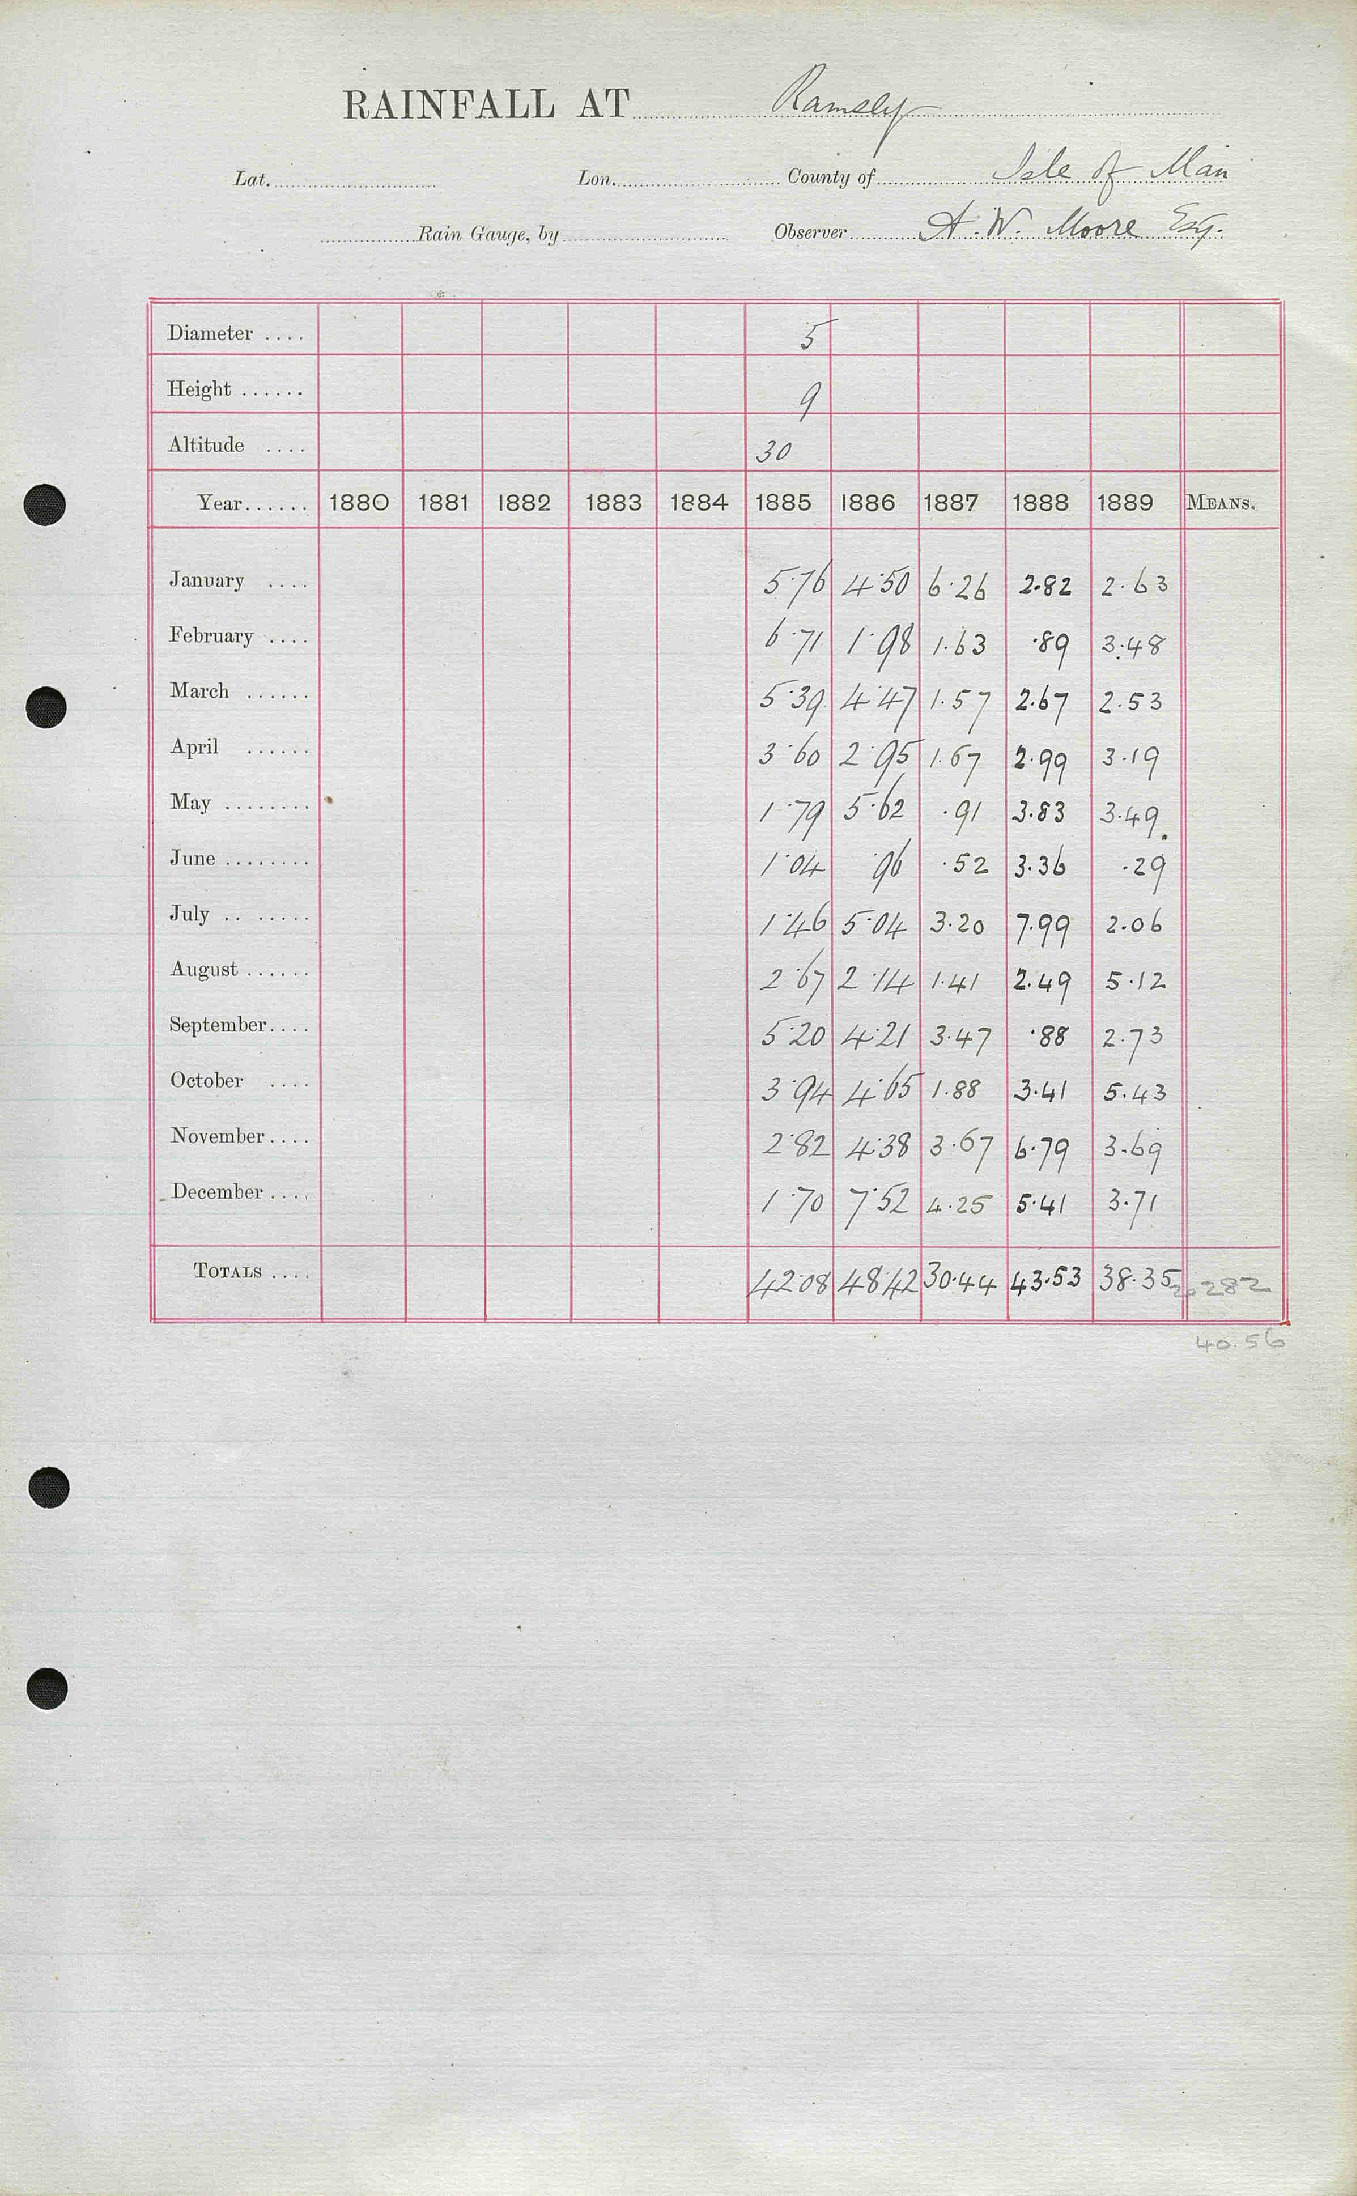 RAINFALL AT Ramsey
Lat. Lon. County of Isle of Man
Rain Gauge, by Observer A. W. Moore Esq.
Diameter .... 5
Height ...... 9
Altitude .... 30
Year...... 1880 1881 1882 1883 1884 1885 1886 1887 1888 1889 MEANS.
January .... 5.76 4.50 6.26 2.82 2.63
February .... 6.71 1.98 1.63 .89 3.48
March ...... 5.39 4.47 1.57 2.67 2.53
April ...... 3.60 2.95 1.67 2.99 3.19
May ........ 1.79 5.62 .91 3.83 3.49
June ........ 1.04 .96 .52 3.36 .29
July .. ...... 1.46 5.04 3.20 7.99 2.06
August ...... 2.67 2.14 1.41 2.49 5.12
September.... 5.20 4.21 3.47 .88 2.73
October .... 3.94 4.65 1.88 3.41 5.43
November.... 2.82 4.38 3.67 6.79 3.69
December .... 1.70 7.52 4.25 5.41 3.71
TOTALS .... 42.08 48.42 30.44 43.53 38.35 282
40.56